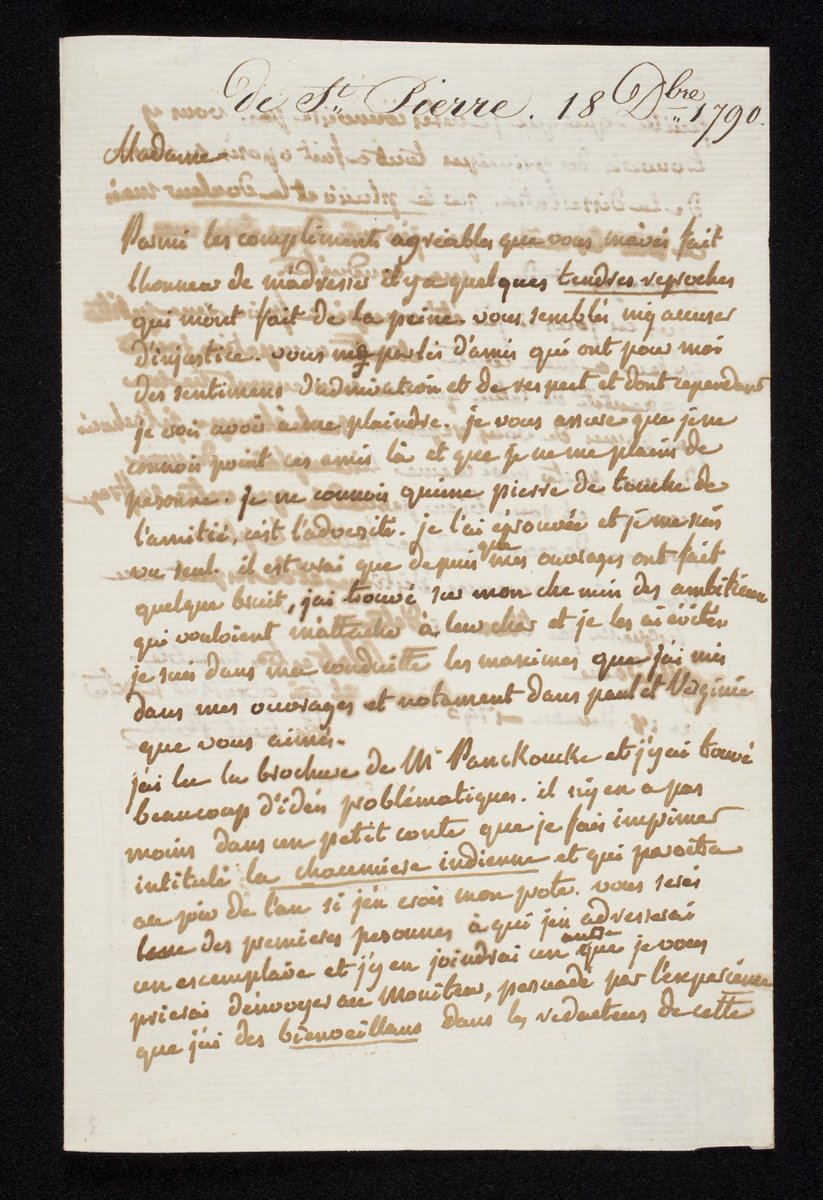 de St. Pierre. 18 Dbre 1790.
Madame
Parmi les compliments agréables que vous mavés fait
lhonneur de m'adresser il y a quelques tendres reproches
qui m'ont fait de la peine. vous semblés my accuser
d'injustice. vous me parlés d'amis qui ont pour moi
des sentimens d'admiration et de respect et dont cependant
je crois avoir à me plaindre. je vous assure que je ne
connois point ces amis là et que je ne me plains de
personne. je ne connois qu'une pierre de touche de
l'amitié, c'est l'adversité. je l'ai éprouvée et je me suis
vu seul. il est vrai que depuis que mes ouvrages ont fait
quelque bruit, jai trouvé sur mon chemin des ambitieux
qui vouloient m'attacher à leur char et je les ai évités
je suis dans ma conduitte les maximes que jai mis
dans mes ouvrages et notament dans paul et Virginie
que vous aimés.
j'ai lu la brochure de Mr Panckoucke et j'y ai trouvé
beaucoup d'idées problématiques. il n'y en a pas
moins dans un petit conte que je fais imprimer
intitulé la chaumiere indienne et qui paroitra
au jour de l'an si j'en crois mon prote. vous serés
lune des premieres personnes à qui j'en adresserai
un exemplaire et j'y en joindrai un autre que je vous
prierai d'envoyer au Moniteur, persuadé par l'experience
que j'ai des bienveillans dans les redacteurs de cette